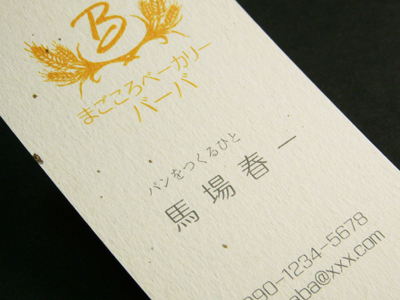 B
まごころベーカリー
バーバ
パンをつくるひと
馬場春一
090-1234-5678
aba@xxx.com